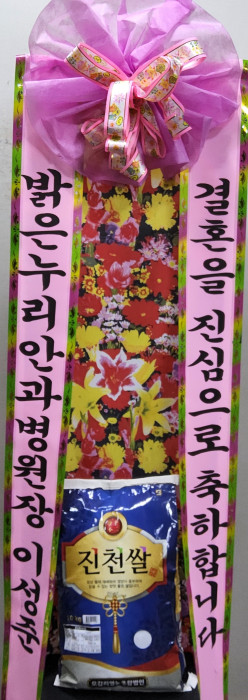 결혼을 진심으로 축하합니다
밝은누리안과병원장 이성준
진천쌀